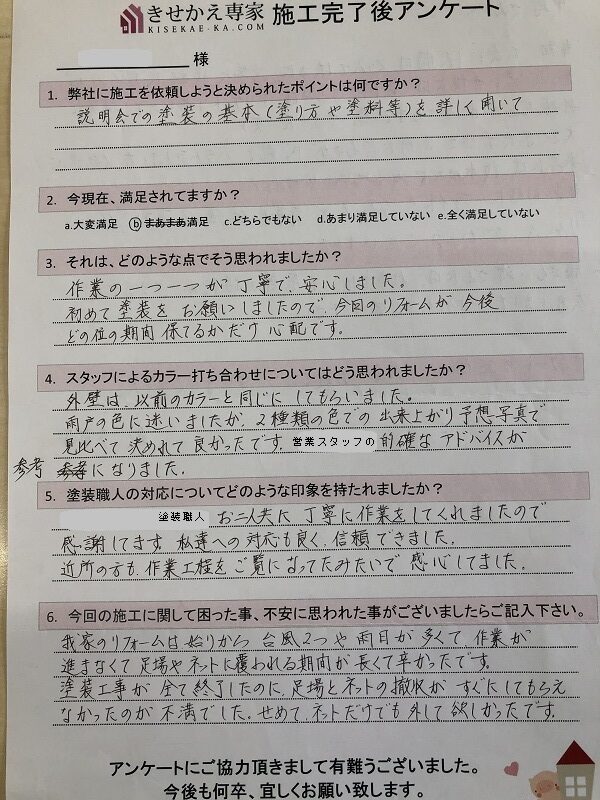 きせかえ専家 施工完了後アンケート
KISEKAE-KA.COM
様
1. 弊社に施工を依頼しようと決められたポイントは何ですか？
説明会での塗装の基本(塗り方や塗料等)を詳しく聞いて
2. 今現在、満足されてますか？
a.大変満足 b まあまあ満足 c.どちらでもない d.あまり満足していない e.全く満足していない
3. それは、どのような点でそう思われましたか？
作業の一つ一つが丁寧で、安心しました。
初めて塗装をお願いしましたので、今回のリフォームが今後
どの位の期間保てるかだけ心配です。
4. スタッフによるカラー打ち合わせについてはどう思われましたか？
外壁は、以前のカラーと同じにしてもらいました。
雨戸の色に迷いましたが、2種類の色での出来上がり予想写真で
見比べて決めれて良かったです。営業スタッフの的確なアドバイスが
参考になりました。
5. 塗装職人の対応についてどのような印象を持たれましたか？
塗装職人 お二人共に丁寧に作業をしてくれましたので
感謝してます。私達への対応も良く、信頼できました。
近所の方も、作業工程をご覧になってたみたいで感心してました。
6. 今回の施工に関して困った事、不安に思われた事がございましたらご記入下さい。
我家のリフォームは始りから台風2つや雨日が多くて、作業が
進まなくて足場やネットに覆われる期間が長くて辛かったです。
塗装工事が全て終了したのに、足場とネットの撤収がすぐにしてもらえ
なかったのが不満でした。せめて、ネットだけでも外して欲しかったです。
アンケートにご協力頂きまして有難うございました。
今後も何卒、宜しくお願い致します。